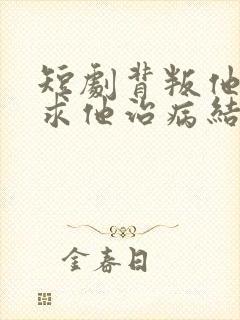 短劇背叛他
求他治病結
金春日